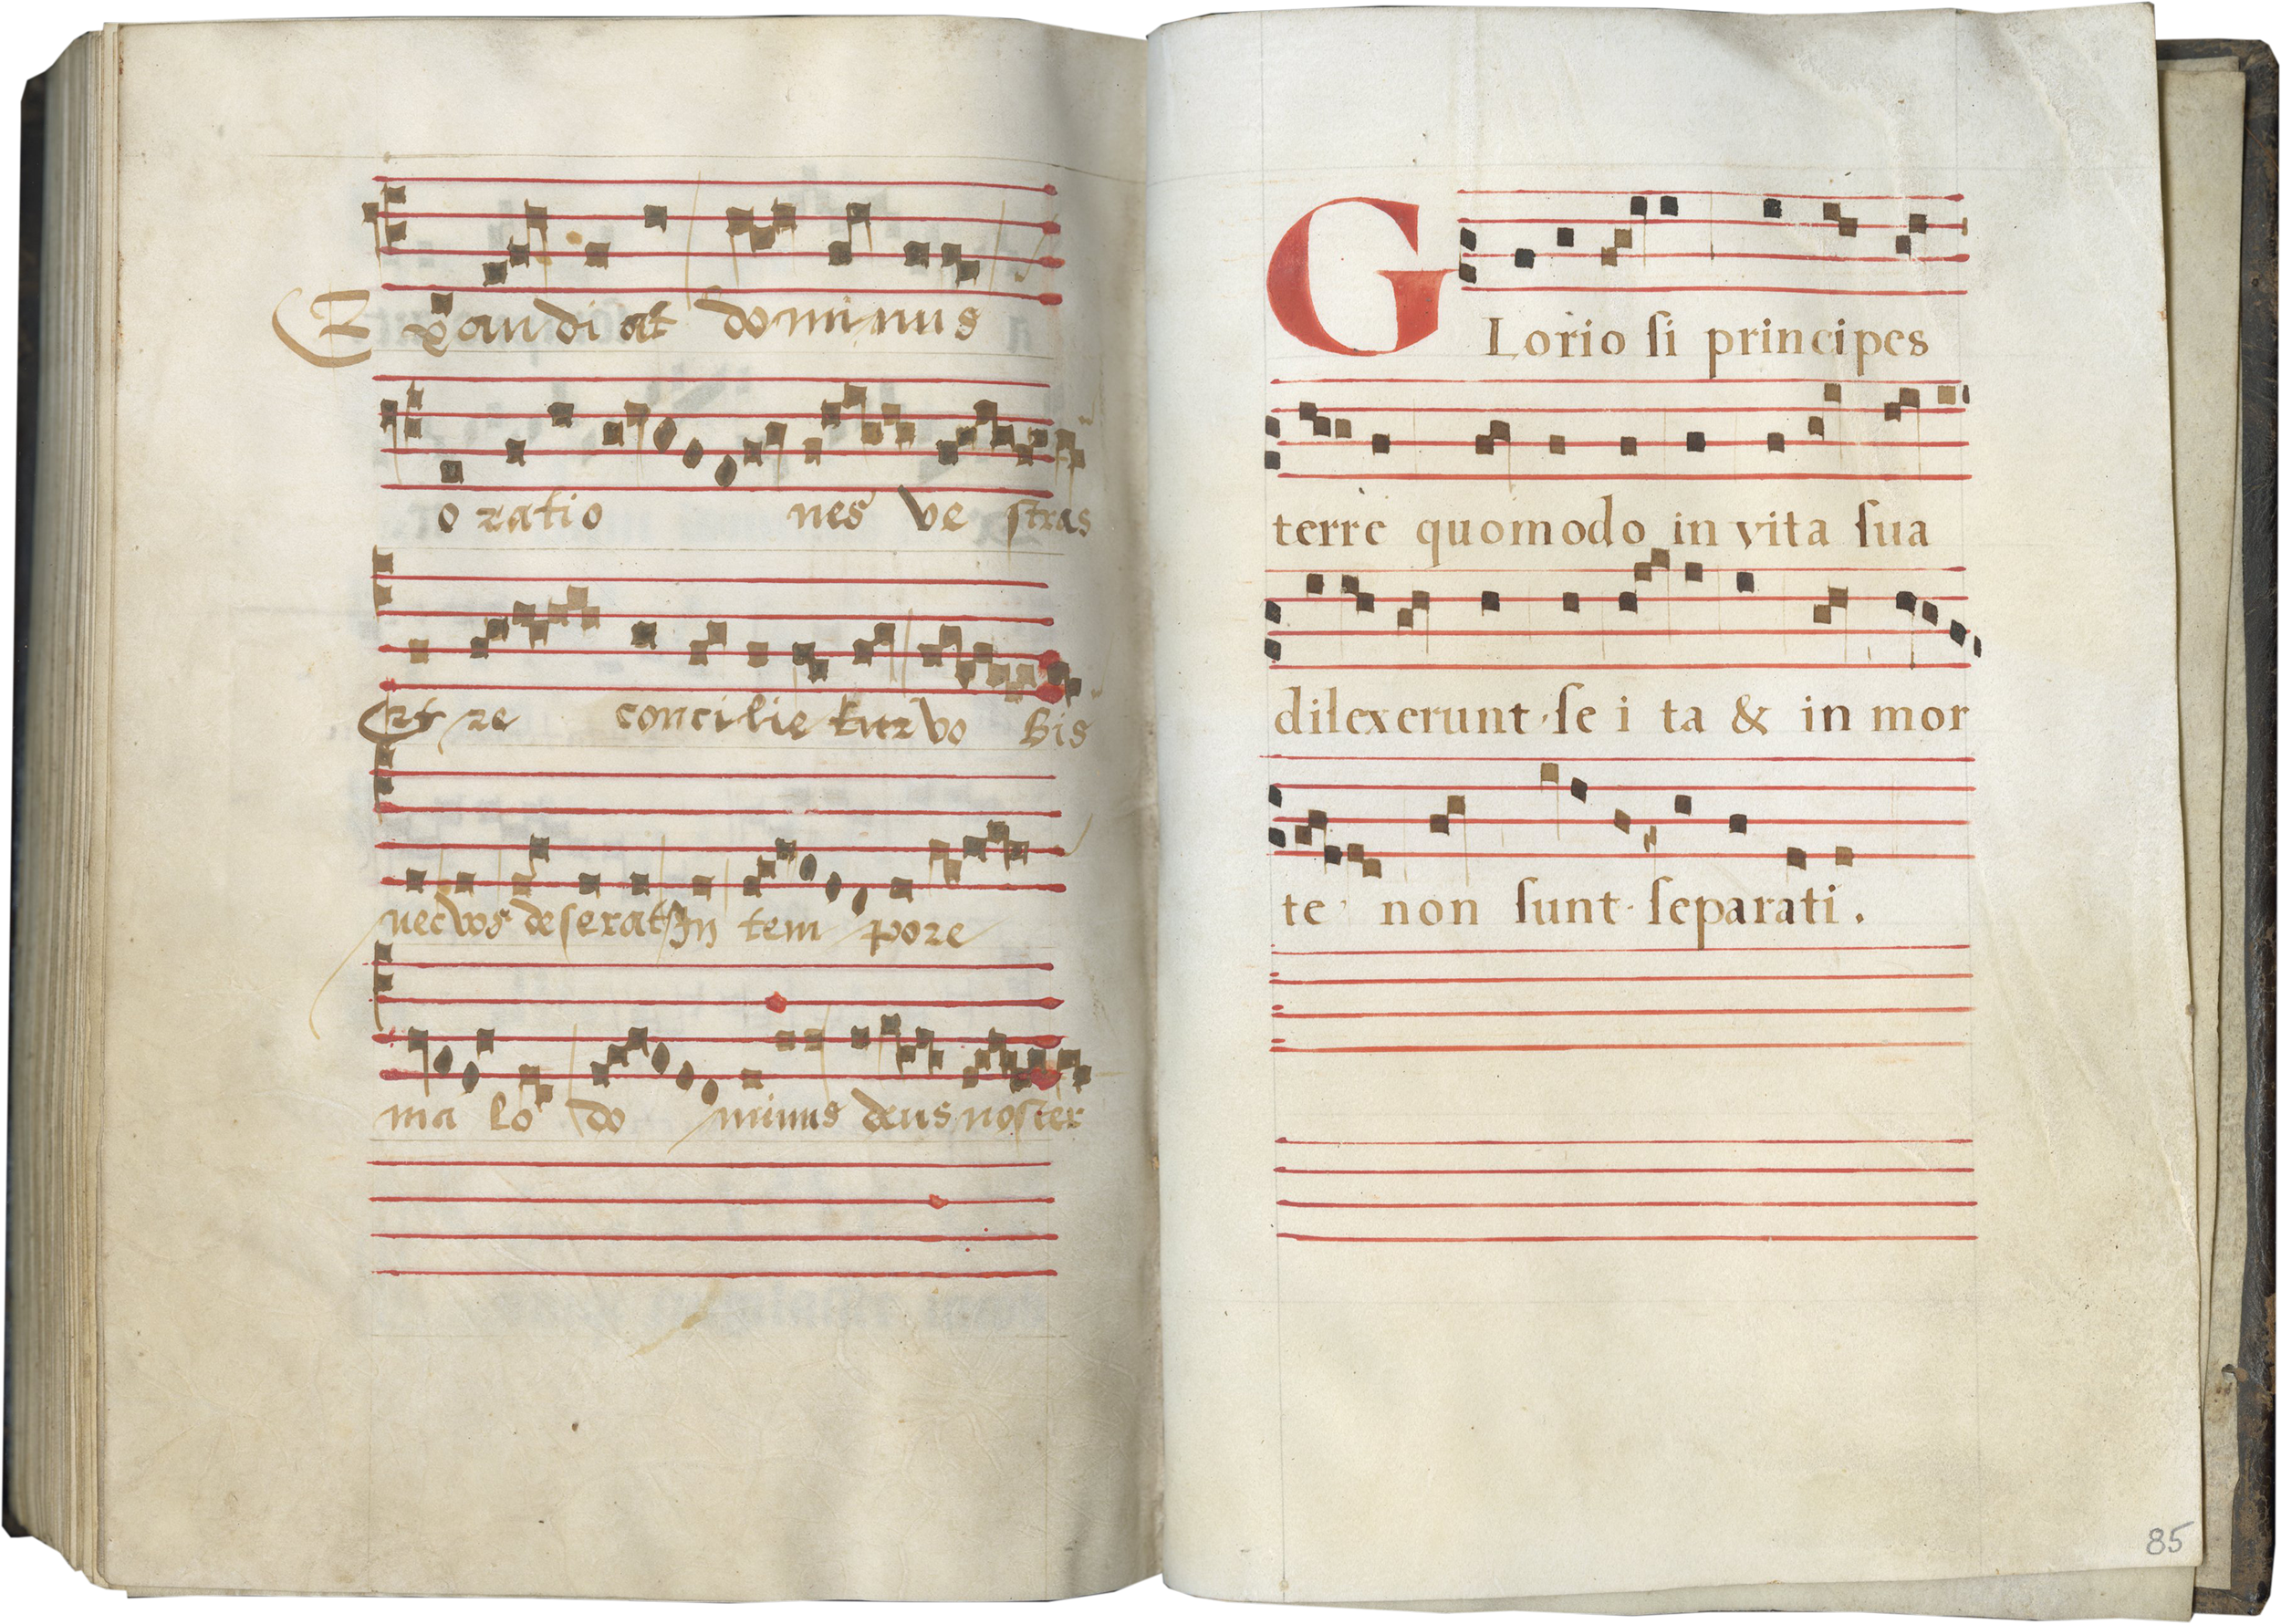 Exaudiat dominus
orationes vestras
Et reconcilietur vobis
nec vos deserat In tempore
malo dominus deus noster
GLorio ſi principes
terre quomodo in vita ſua
dilexerunt ſe i ta & in mor
te non ſunt ſeparati.
85